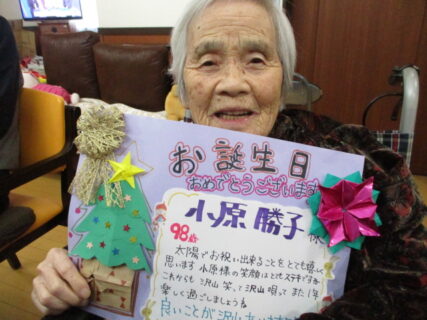 お誕生日
おめでとうございます
小原 勝子 様
98歳
太陽でお祝い出来ることをとても嬉しく
思います 小原様の笑顔はとてもステキですね
これからも 沢山 笑って沢山 唄って また1年
楽しく過ごしましょうね
良いことが沢山